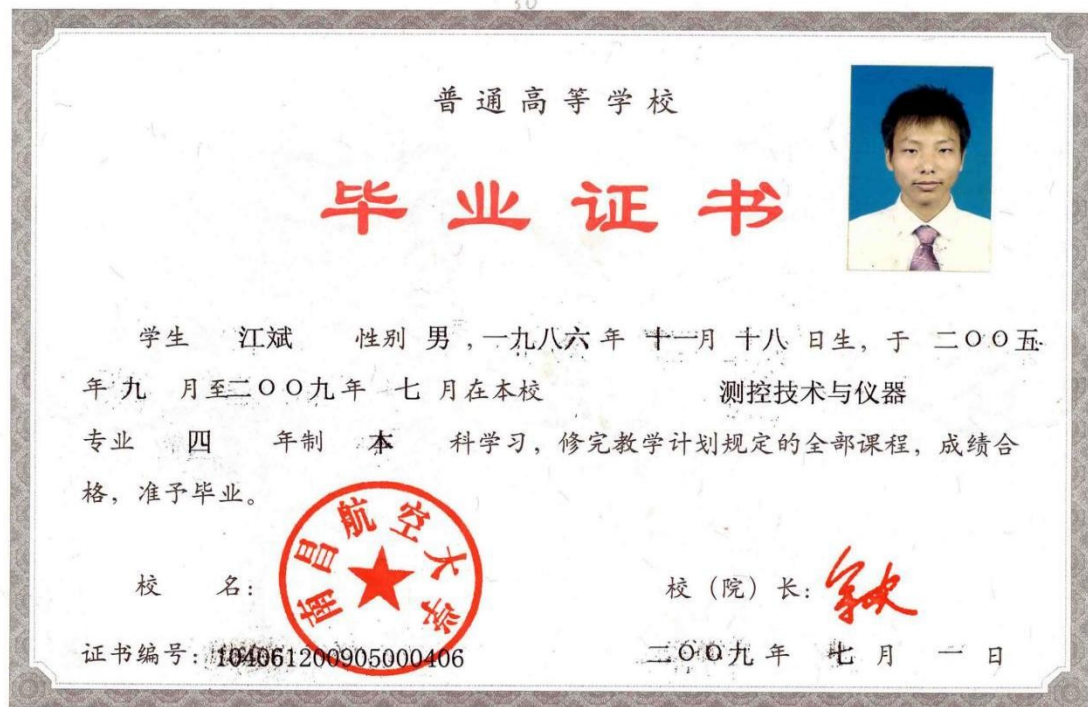 普通高等学校
毕业证书
学生 江斌 性别 男，一九八六年 十一月 十八 日生，于 二〇〇五
年 九 月至二〇〇九年 七 月在本校 测控技术与仪器
专业 四 年制 本 科学习，修完教学计划规定的全部课程，成绩合
格，准予毕业。
南昌航空大学
校 名： 校（院）长：
证书编号：104061200905000406 二〇〇九年 七 月 一 日